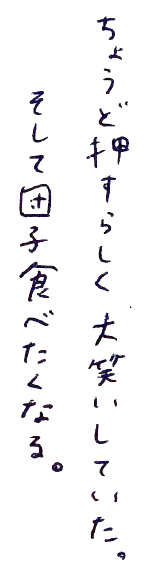 ちょうど押すらしく大笑いしていた。
そして団子食べたくなる。